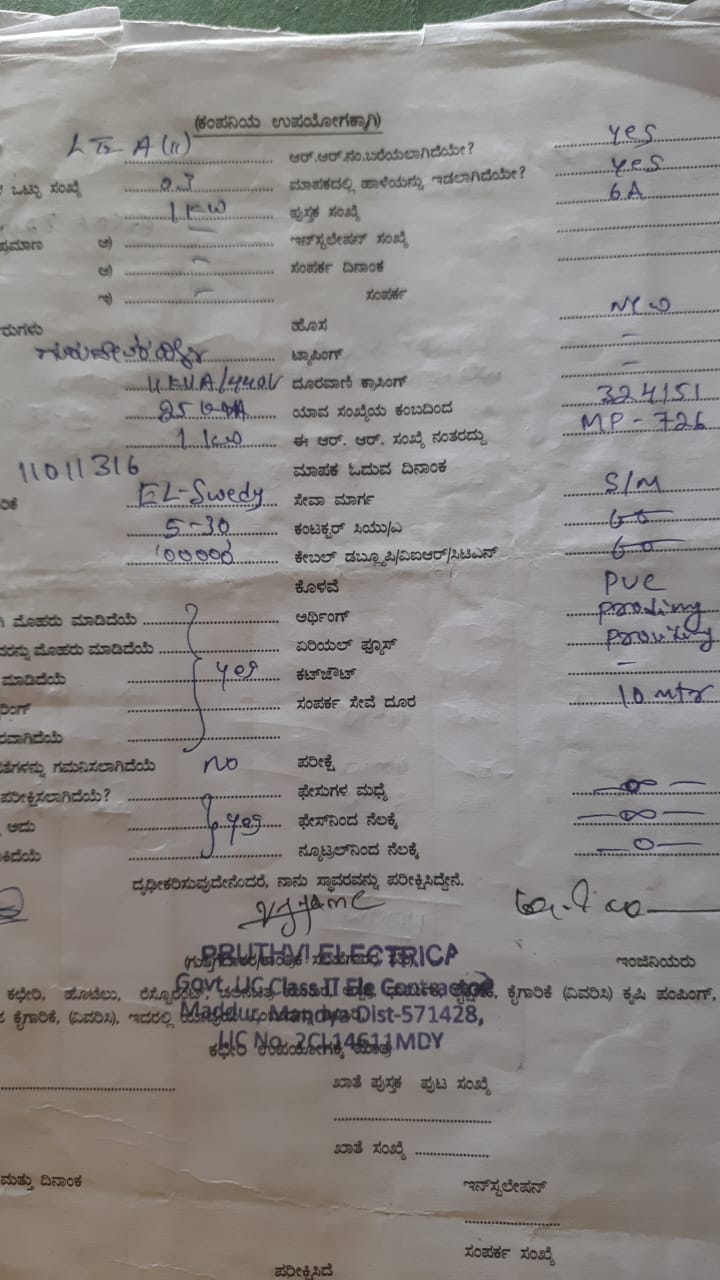 (ಕಂಪನಿಯ ಉಪಯೋಗಕ್ಕಾಗಿ)
LT2 A (ii) ಆರ್.ಆರ್.ನಂ.ಬರೆಯಲಾಗಿದೆಯೇ? yes
ಒಟ್ಟು ಸಂಖ್ಯೆ 03 ಮಾಪಕದಲ್ಲಿ ಹಾಳೆಯನ್ನು ಇಡಲಾಗಿದೆಯೇ? yes
1 KW ಪುಸ್ತಕ ಸಂಖ್ಯೆ 6A
ಪ್ರಮಾಣ ಅ) ಇನ್‌ಸ್ಟಲೇಷನ್ ಸಂಖ್ಯೆ
ಆ) ಸಂಪರ್ಕ ದಿನಾಂಕ
ಇ) ಸಂಪರ್ಕ
ಹೊಸ New
ಟ್ಯಾಪಿಂಗ್ –
11 KVA/440V ದೂರವಾಣಿ ಕ್ರಾಸಿಂಗ್ –
25 KVA ಯಾವ ಸಂಖ್ಯೆಯ ಕಂಬದಿಂದ 324151
1 KW ಈ ಆರ್. ಆರ್. ಸಂಖ್ಯೆ ನಂತರದ್ದು MP-726
11011316 ಮಾಪಕ ಓದುವ ದಿನಾಂಕ
EL-Swedy ಸೇವಾ ಮಾರ್ಗ S/M
5-30 ಕಂಟಕ್ಟರ್ ಸಿಯು/ಎ
00000 ಕೇಬಲ್ ಡಬ್ಲ್ಯೂಪಿ/ವಿಐಆರ್/ಸಿಟಿಎಸ್
ಕೊಳವೆ PVC
ಮೊಹರು ಮಾಡಿದೆಯೆ ಅರ್ಥಿಂಗ್
ಮೊಹರು ಮಾಡಿದೆಯೆ ಏರಿಯಲ್ ಫ್ಯೂಸ್
ಮಾಡಿದೆಯೆ yes ಕಟ್‌ಔಟ್ –
ಸಂಪರ್ಕ ಸೇವೆ ದೂರ 10 mtr
ಗಮನಿಸಲಾಗಿದೆಯೆ no ಪರೀಕ್ಷೆ
ಪರೀಕ್ಷಿಸಲಾಗಿದೆಯೆ? ಫೇಸುಗಳ ಮಧ್ಯೆ —∞—
ಅದು yes ಫೇಸ್‌ನಿಂದ ನೆಲಕ್ಕೆ —∞—
ನ್ಯೂಟ್ರಲ್‌ನಿಂದ ನೆಲಕ್ಕೆ —0—
ದೃಢೀಕರಿಸುವುದೇನೆಂದರೆ, ನಾನು ಸ್ಥಾವರವನ್ನು ಪರೀಕ್ಷಿಸಿದ್ದೇನೆ.
PRUTHVI ELECTRICA
ಇಂಜಿನಿಯರು
Govt. LIC Class II Ele Contractor
ಕಛೇರಿ, ಹೊಟೆಲು, ಕೈಗಾರಿಕೆ (ವಿವರಿಸಿ) ಕೃಷಿ ಪಂಪಿಂಗ್,
ಕೈಗಾರಿಕೆ, (ವಿವರಿಸಿ), ಇದರಲ್ಲಿ
Maddur, Mandya Dist-571428,
LIC No. 2CL14611MDY
ಕಛೇರಿ ಉಪಯೋಗಕ್ಕೆ ಮಾತ್ರ
ಖಾತೆ ಪುಸ್ತಕ ಪುಟ ಸಂಖ್ಯೆ
ಖಾತೆ ಸಂಖ್ಯೆ
ಮತ್ತು ದಿನಾಂಕ ಇನ್‌ಸ್ಟಲೇಷನ್
ಸಂಪರ್ಕ ಸಂಖ್ಯೆ
ಪರೀಕ್ಷಿಸಿದೆ